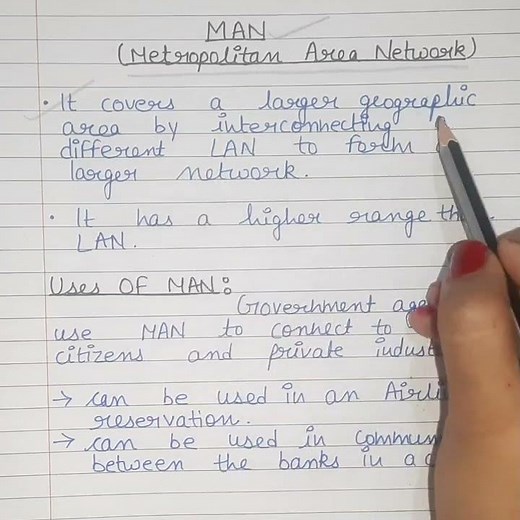 MAN
(Metropolitan Area Network)
• It covers a larger geographic
area by interconnecting
different LAN to form
larger network.
• It has a higher range
LAN.
Uses OF MAN:
Government
use MAN to connect to
citizens and private
→ can be used in an
reservation.
→ can be used in
between the banks in a